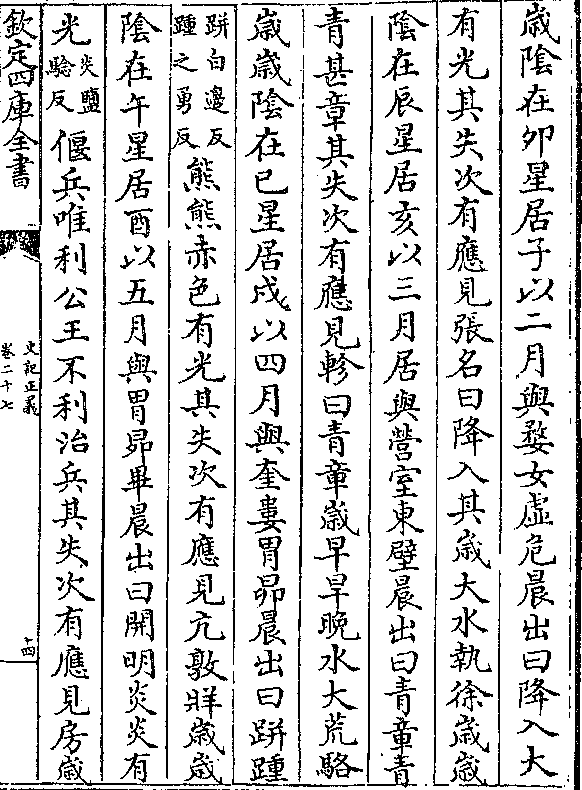 歲陰在卯星居子以二月與婺女虛危晨出曰降入大
有光其失次有應見張名曰降入其歲大水執徐歲歲
陰在辰星居亥以三月居與營室東壁晨出曰青章青
青甚章其失次有應見軫曰青章歲早旱晚水大荒駱
歲歲陰在巳星居戌以四月與奎婁胃昴晨出曰跰踵
跰白邊反
踵之勇反
熊熊赤色有光其失次有應見亢敦牂歲歲
陰在午星居酉以五月與胃昴畢晨出曰開明炎炎有
光
炎鹽
驗反
偃兵唯利公王不利治兵其失次有應見房歲
欽定四庫全書
史記正義
卷二十七
十四